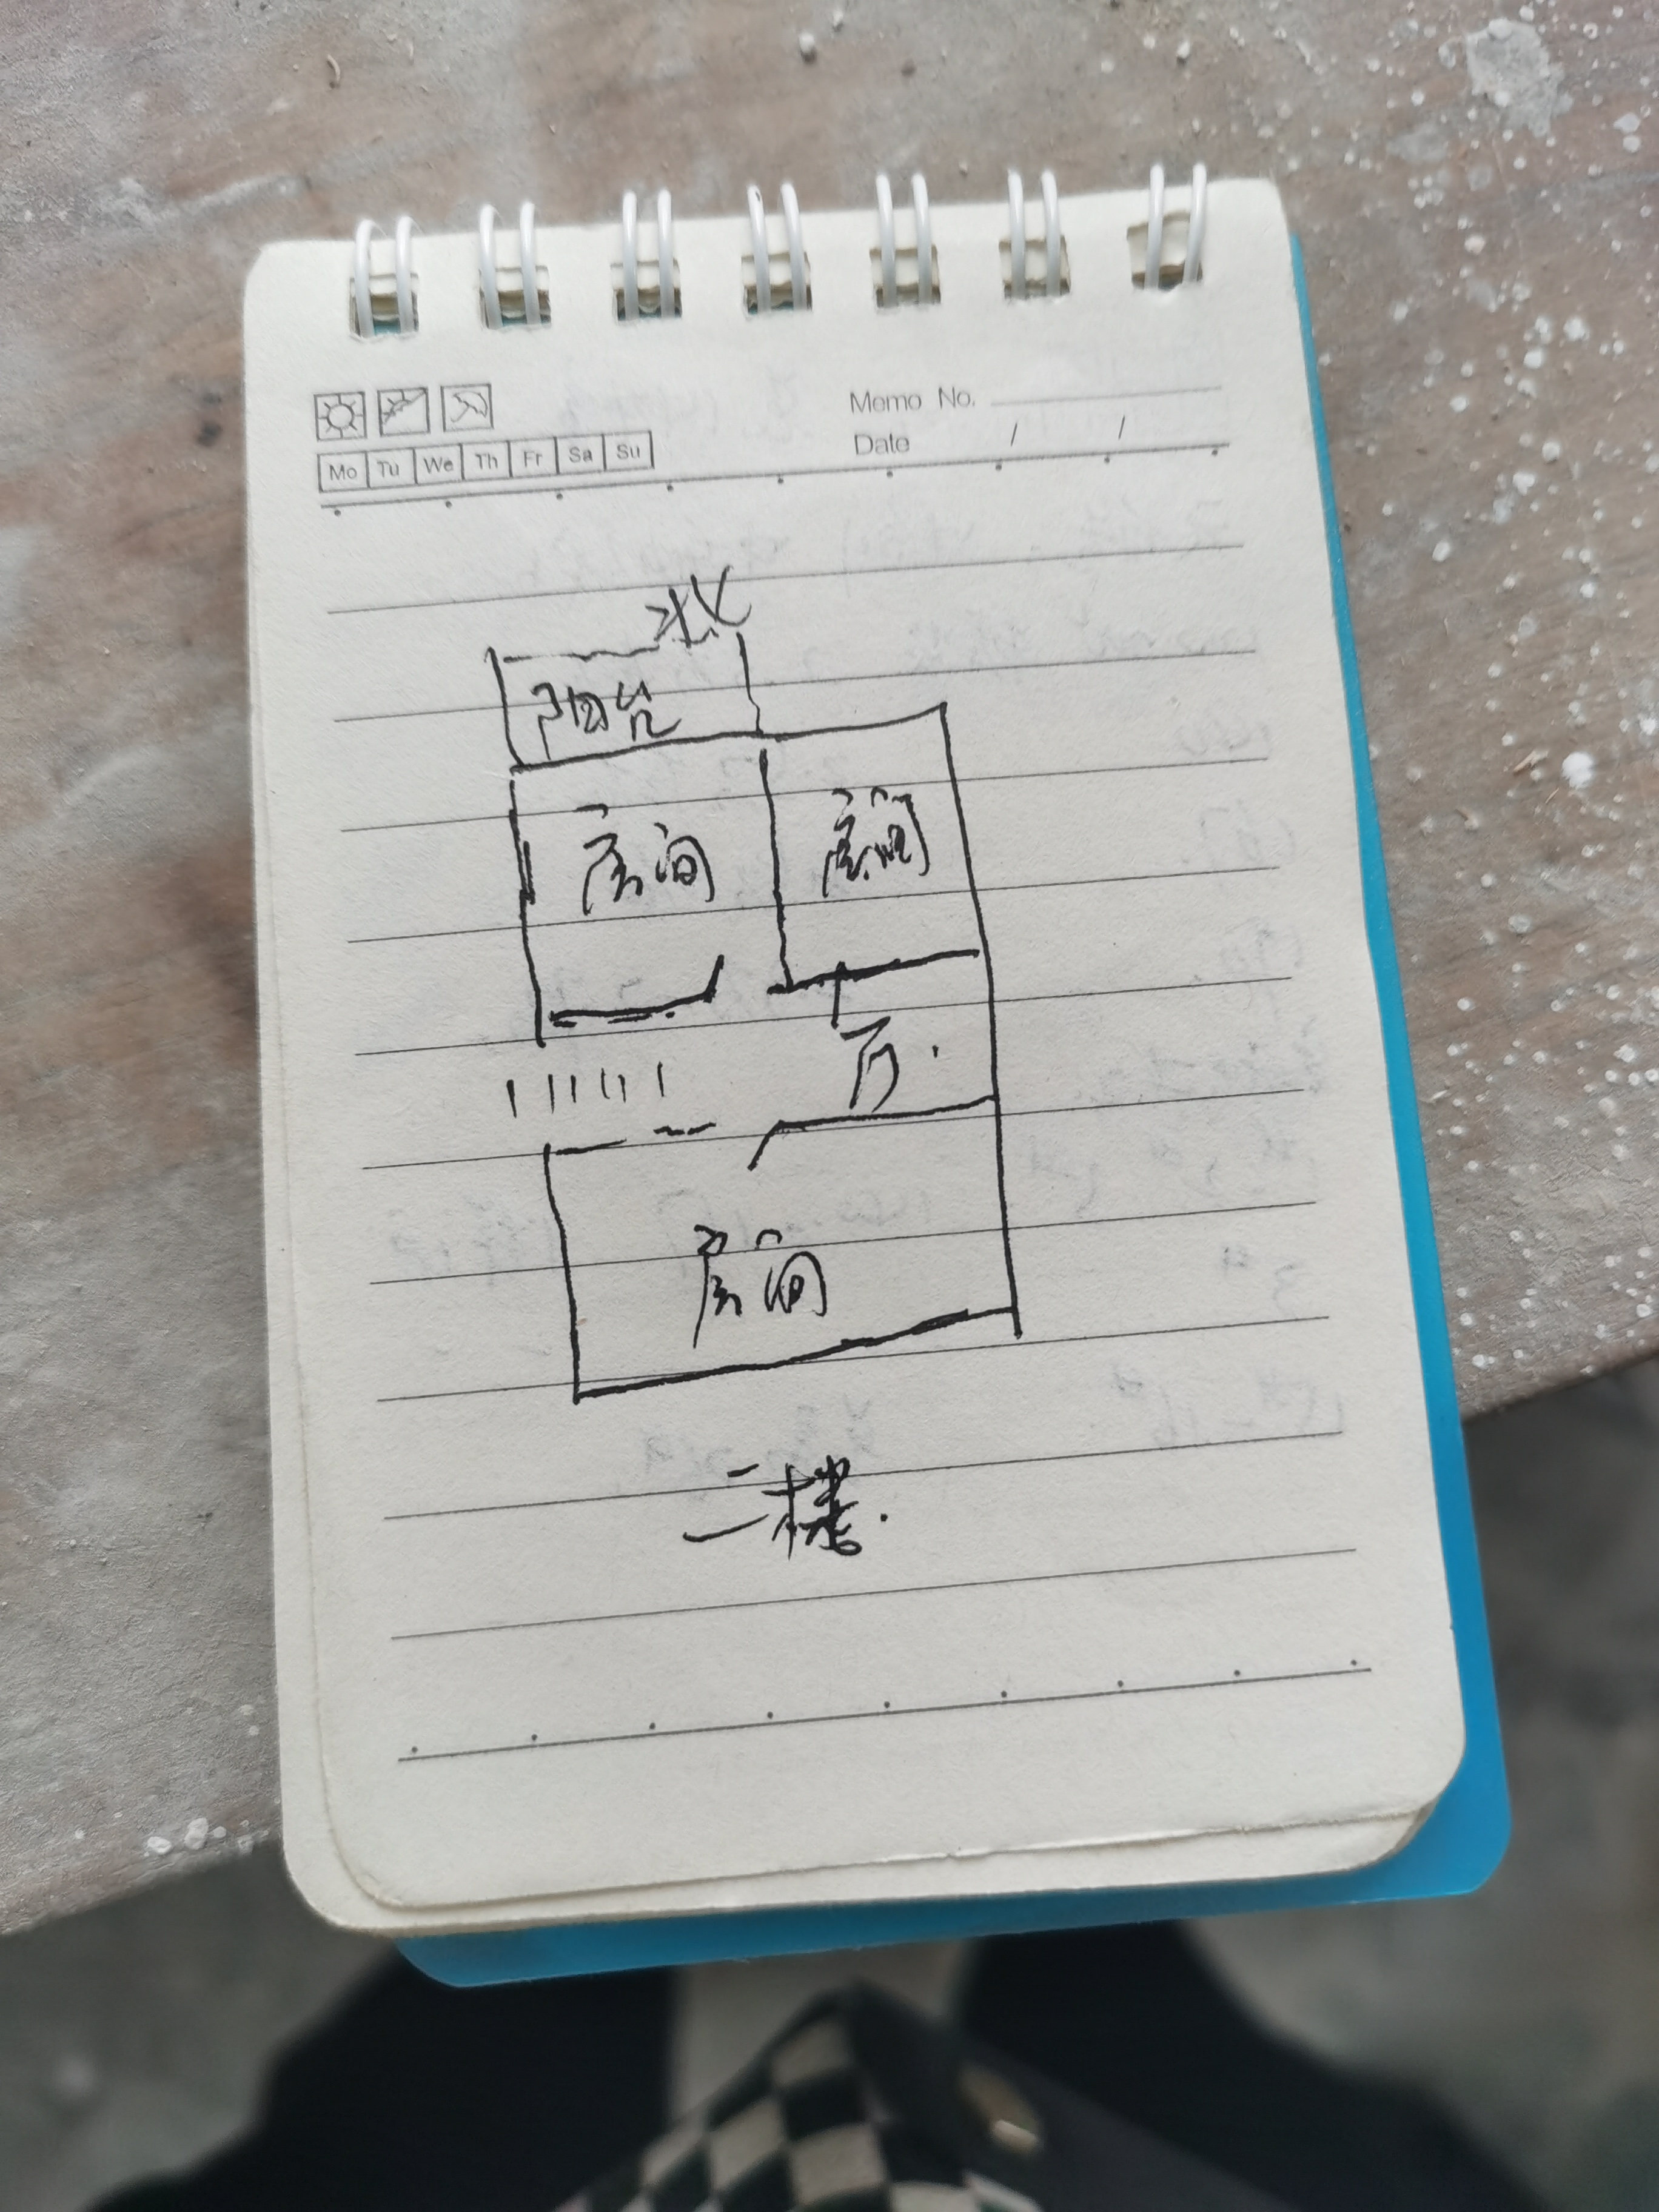 Memo No.
Date / /
Mo Tu We Th Fr Sa Su
北
阳台
房间 房间
厅.
房间
二楼.